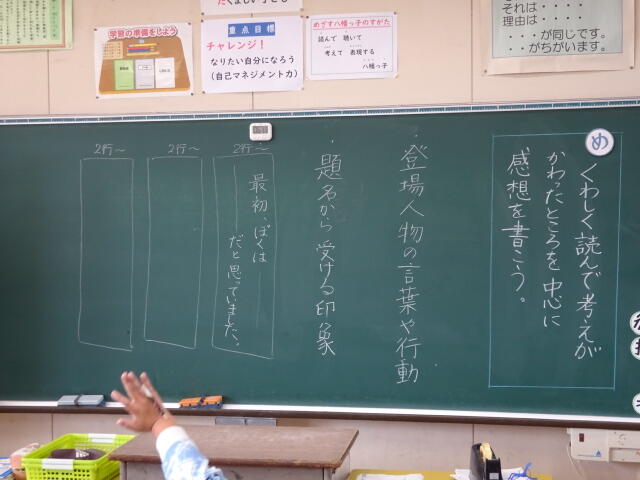 たくましい子ども
学習の準備をしよう
重点目標
チャレンジ！
なりたい自分になろう
（自己マネジメント力）
めざす八幡っ子のすがた
読んで 聴いて
考えて 表現する
八幡っ子
それは・・・・
理由は・・・・
・・が同じです。
・・がちがいます。
め
くわしく読んで考えが
かわったところを中心に
感想を書こう。
・登場人物の言葉や行動
・題名から受ける印象
2行～
最初、ぼくは
だと思っていました。
2行～
2行～